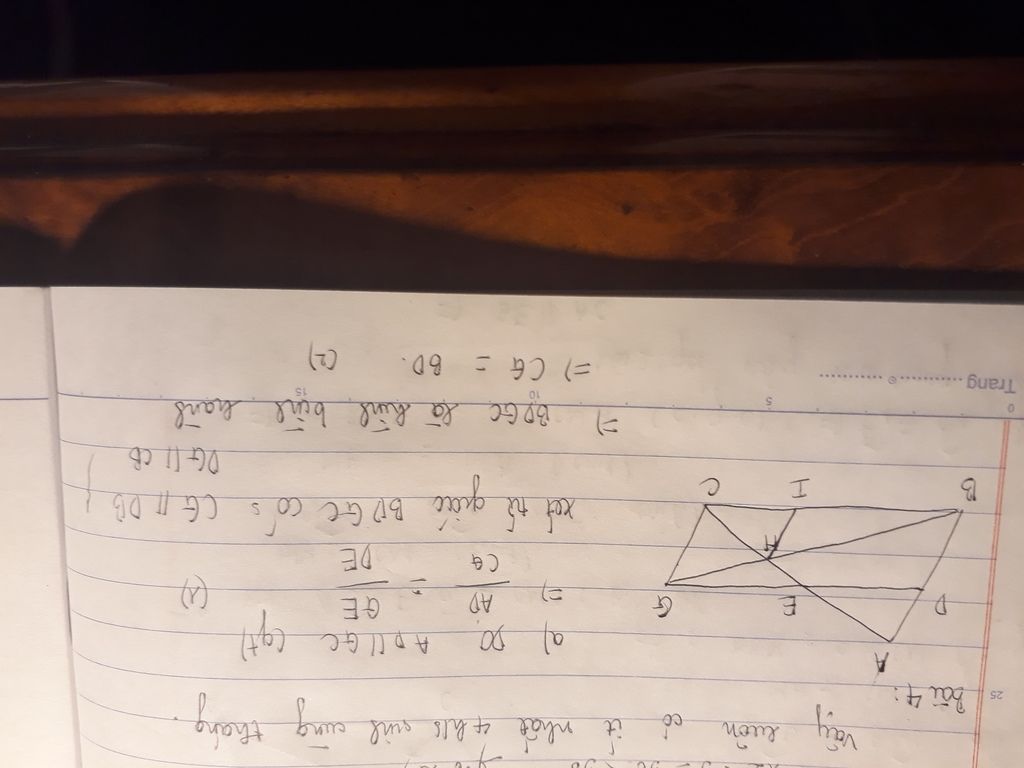 Vậy luôn có ít nhất 4 h/s sinh cùng tháng.
Bài 4:
A
D
E
G
H
B
I
C
a) Do AD // GC (gt)
=> AD/CG = GE/DE (1)
xét tứ giác BDGC có: CG // DB }
DG // CB
=> BDGC là hình bình hành
=> CG = BD. (2)
0 5 10 15
25
Trang